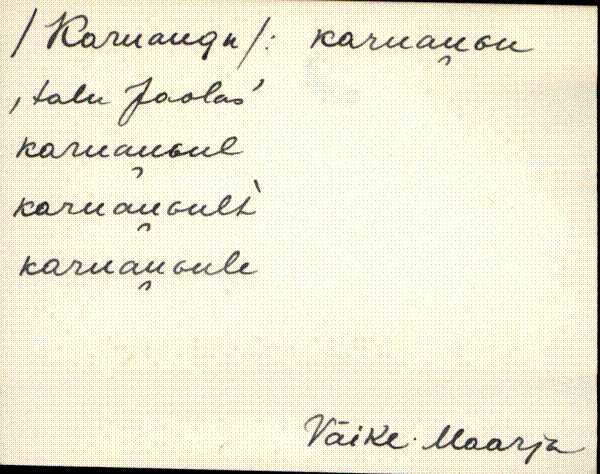 /Karuaugu/: karuau̯ɢu
‚talu Jaolas’
karuau̯ɢul
karuau̯ɢult`
karuau̯ɢule
Väike-Maarja